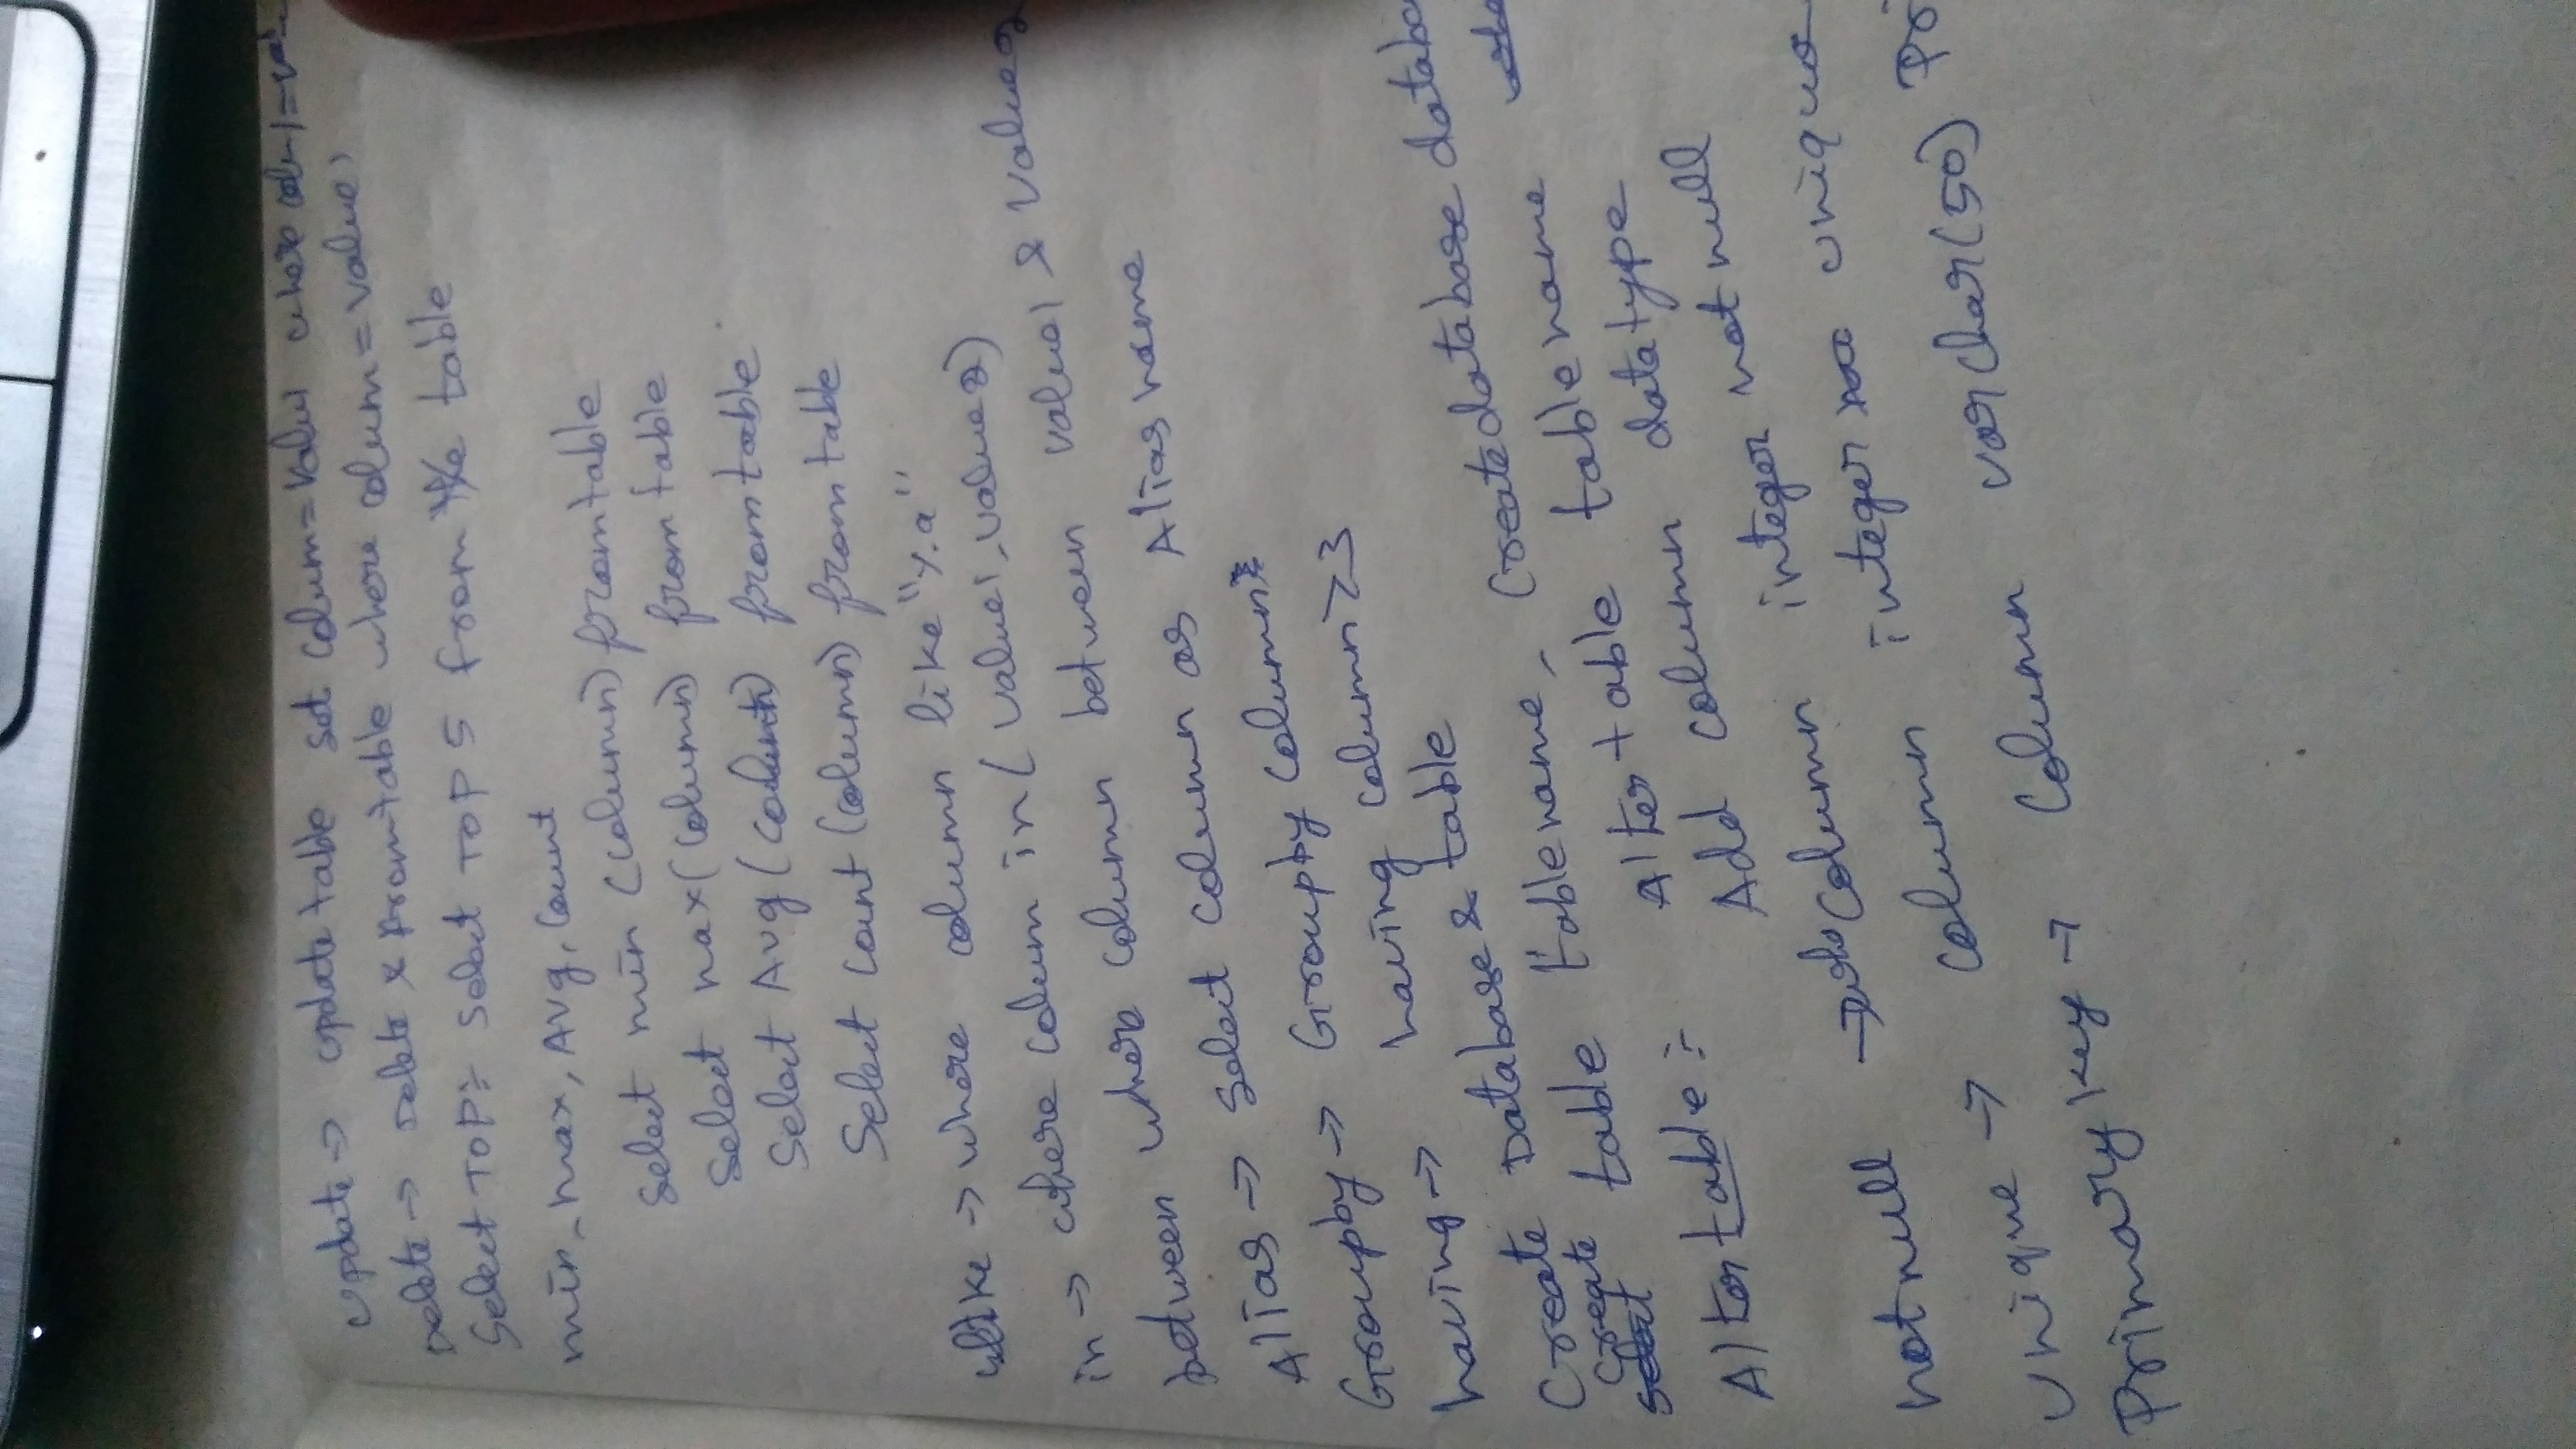 update → update table set column = value where colum1 = val
Delete → Delete * from table where column = value
Select TOP:- select TOP 5 from table
min, max, Avg, Count
Select min (column) from table
Select max (column) from table
Select Avg (column) from table
Select Count (column) from table
like → where column like "%a"
in → where column in (value1, value2)
between where column between value1 & value2
Alias → select column as Alias name
Group by → Group by column
having → having column > 3
Create Database & table Create database databa
Create table tablename, Create table name
Alter table:- Alter table table name
Add column datatype
not null → column integer not null
unique → column integer unique
Primary key → column varchar(50) Pri